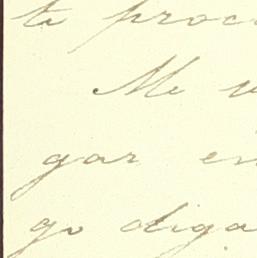 te proc
Me v
gar en
go diga